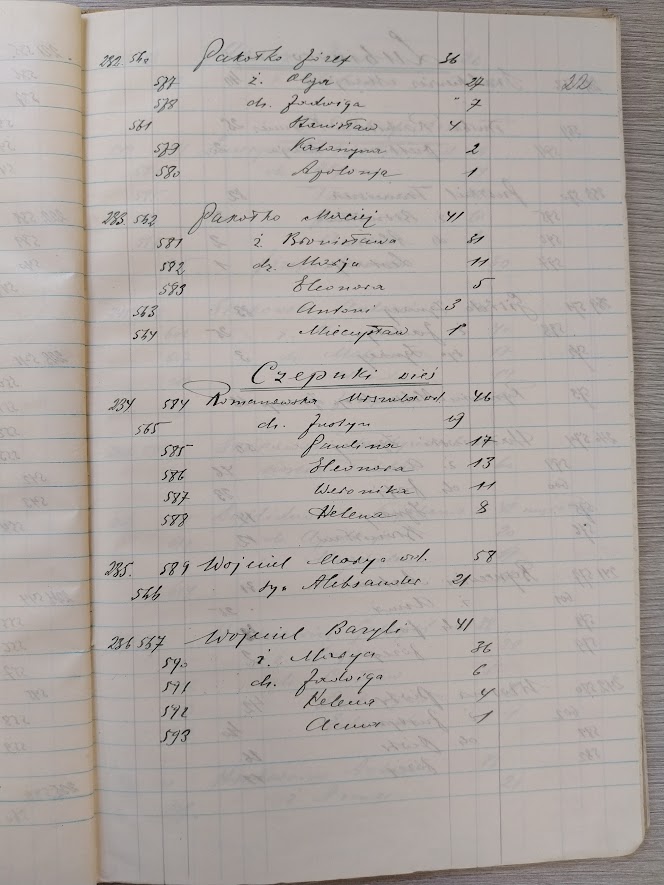 22
232. 560 Pakołko Józef 36
577 ż. Olga 27
578 dz. Jadwiga 7
561 Stanisław 4
579 Katarzyna 2
580 Apolonja 1
233. 562 Pakołko Maciej 41
581 ż Bronisława 31
582 dz. Marja 11
583 Eleonora 5
563 Antoni 3
564 Mieczysław 1
Czepuki wieś
234 584 Romanowska Urszula wd. 46
565 dz. Justyn 19
585 Paulina 17
586 Eleonora 13
587 Weronika 11
588 Helena 8
235. 589 Wojciul Marya wd. 58
566 syn Aleksander 21
236 567 Wojciul Bazyli 41
590 ż. Marya 36
591 dz. Jadwiga 6
592 Helena 4
593 Anna 1